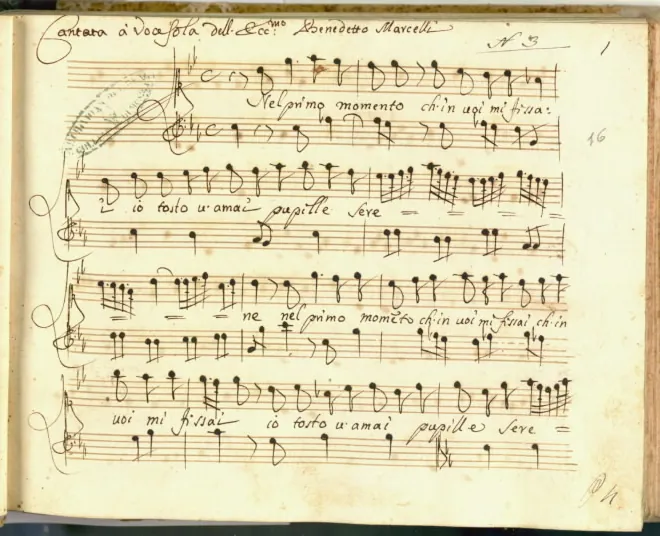 Cantata à Voce sola dell: Ecc:mo Benedetto Marcelli
N 3
1
Nel primo momento ch'in voi mi fissa:
16
i io tosto v'amai pupille sere = = = =
= = ne nel primo momẽto ch'in voi mi fissai ch'in
voi mi fissai io tosto v'amai pupille sere =